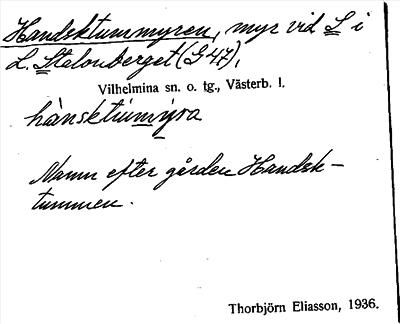 Handsktummyren, myr vid S i
L. Stalonberget (G47),
Vilhelmina sn. o. tg., Västerb. l.
hànsktúmmýra
Namn efter gården Handsk-
tummen.
Thorbjörn Eliasson, 1936.